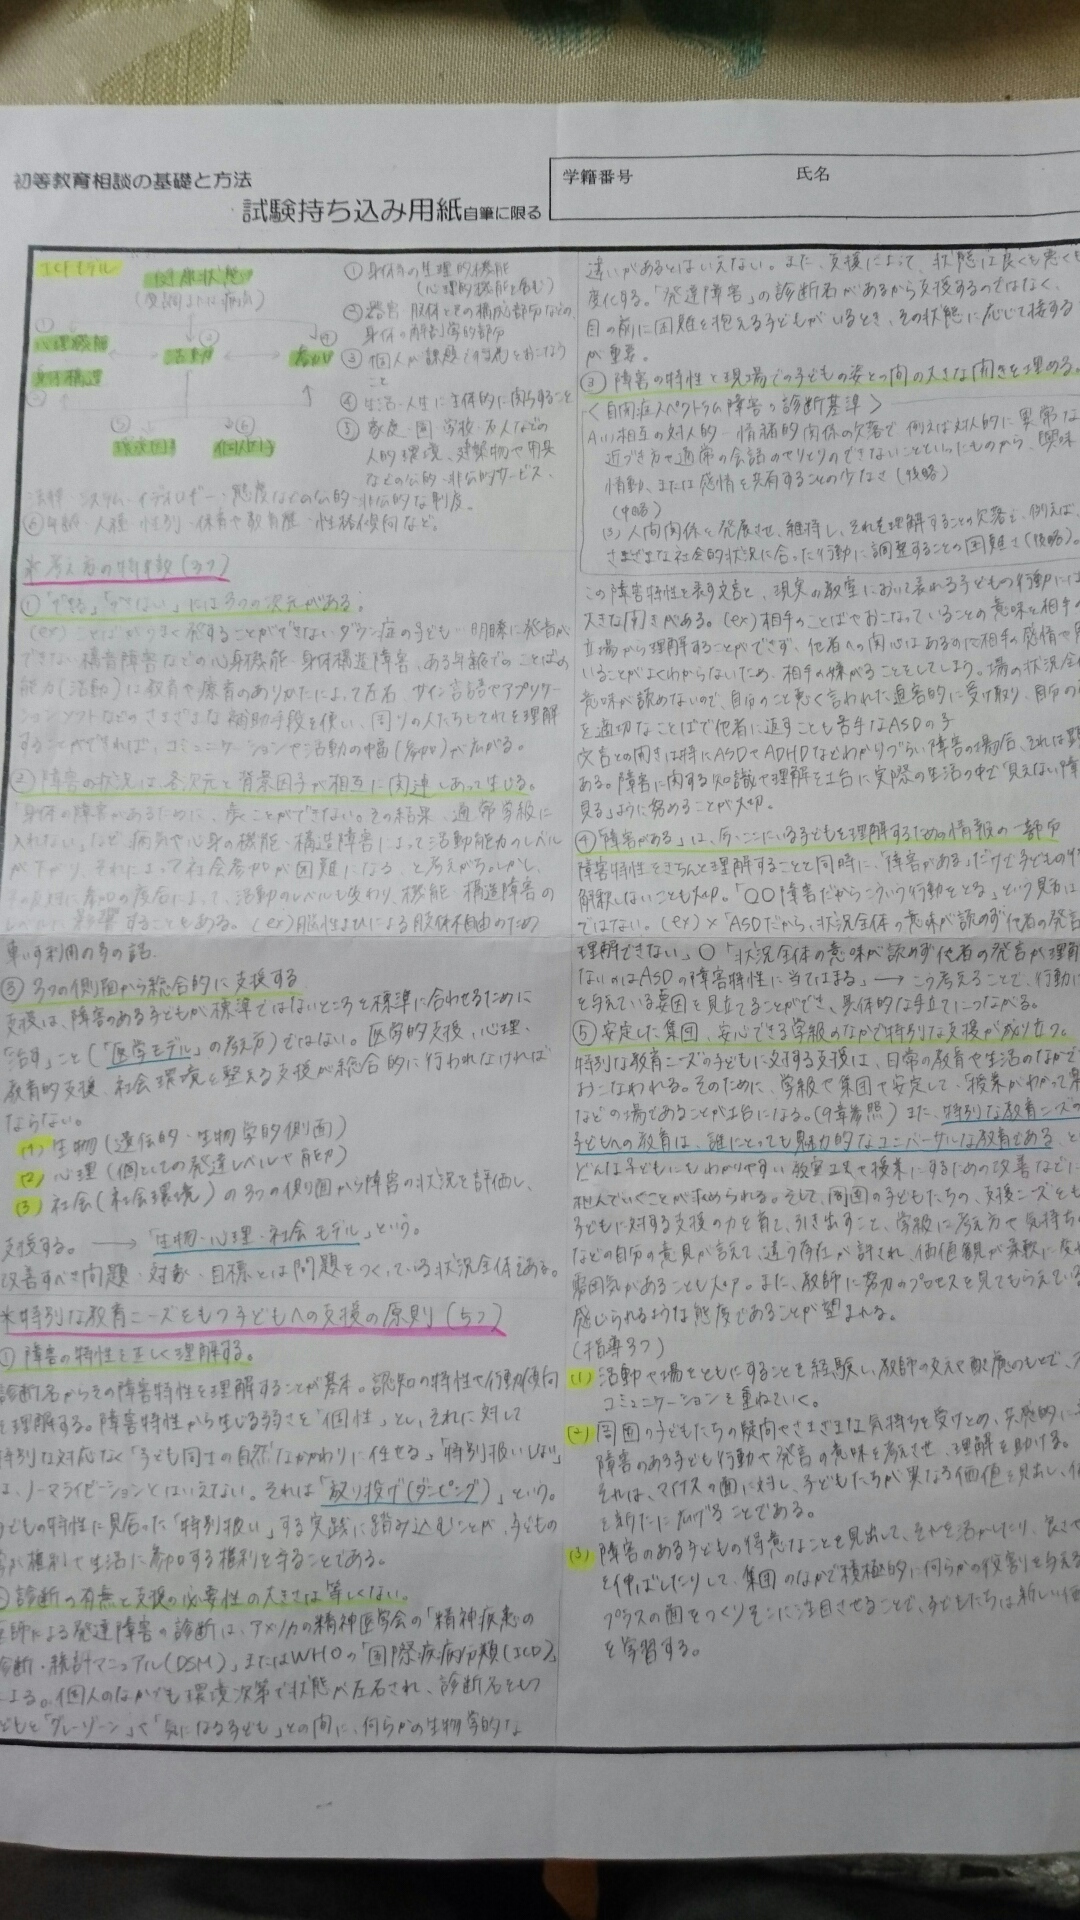 初等教育相談の基礎と方法
試験持ち込み用紙 自筆に限る
学籍番号
氏名
ICFモデル
健康状態
(変調または病気)
①
②
④
心理機能
活動
参加
身体構造
⑤
⑥
環境因子
個人因子
①身体の生理的機能
(心理的機能を含む)
②器官・肢体とその構成部分などの、
身体の解剖学的部分
③個人が課題や行為をおこなう
こと
④生活・人生に主体的に関わること
⑤家庭・園・学校・友人などの
人的環境、建築物や用具
などの公的・非公的サービス、
法律・システム・イデオロギー・態度などの公的・非公的な制度。
⑥年齢・人種・性別・体育や教育歴・性格傾向など。
※考え方の特徴(3つ)
①「できる」「できない」には3つの次元がある。
(ex)ことばがうまく発することができないダウン症の子ども…明瞭に発音が
できない構音障害などの心身機能・身体構造障害、ある年齢でのことばの
能力(活動)は教育や療育のありかたによって左右、サイン言語やアプリケー
ションソフトなどのさまざまな補助手段を使い、周りの人たちもそれを理解
することができれば、コミュニケーションや活動の中高(参加)が広がる。
②障害の状況は、各次元と背景因子が相互に関連しあって生じる。
「身体の障害があるために、歩くことができない。その結果、通常学級に
入れない」など病気や心身の機能・構造障害によって活動能力のレベル
が下がり、それによって社会参加が困難になる、と考えがち。しかし、
その反対に参加の度合によって、活動のレベルも変わり、機能・構造障害の
レベルに影響することもある。(ex)脳性まひによる肢体不自由のため
車いす利用の子の話
③3つの側面から総合的に支援する
支援は、障害のある子どもが標準ではないところを標準に合わせるために
「治す」こと(「医学モデル」の考え方)ではない。医学的支援、心理、
教育的支援、社会環境を整える支援が総合的に行われなければ
ならない。
(1)生物(遺伝的・生物学的側面)
(2)心理(個としての発達レベルや能力)
(3)社会(社会環境)の3つの側面から障害の状況を評価し、
支援する。→「生物・心理・社会モデル」という。
改善すべき問題・対象・目標とは問題をつくっている状況全体である。
※特別な教育ニーズをもつ子どもへの支援の原則(5つ)
①障害の特性を正しく理解する。
診断名からその障害特性を理解することが基本。認知の特性や行動傾向
を理解する。障害特性から生じる弱さを「個性」とし、それに対して
特別な対応なく「子ども同士の自然なかかわりに任せる」「特別扱いしない」
は、ノーマライゼーションとはいえない。それは「放り投げ(ダンピング)」という。
子どもの特性に見合った「特別扱い」する実践に踏み込むことが、子どもの
権利や生活に参加する権利を守ることである。
②診断の有無と支援の必要性の大きさは等しくない。
医師による発達障害の診断は、アメリカの精神医学会の「精神疾患の
診断・統計マニュアル(DSM)」またはWHOの「国際疾病分類(ICD)」
による。個人のなかでも環境次第で状態が左右され、診断名をもつ
子どもと「グレーゾーン」や「気になる子ども」との間に、何らかの生物学的な
違いがあるとはいえない。また、支援によって、状態は良くも悪くも
変化する。「発達障害」の診断名があるから支援するのではなく、
目の前に困難を抱える子どもがいるとき、その状態に応じて接する
が重要。
③障害の特性と現場での子どもの姿との間の大きな開きを埋める。
<自閉症スペクトラム障害の診断基準>
A(1)相互の対人的-情緒的関係の欠落で、例えば対人的に異常な
近づき方や通常の会話のやりとりのできないことといったものから、興味
情動、または感情を共有することの少なさ(後略)
(中略)
(3)人間関係を発展させ、維持し、それを理解することの欠落で、例えば、
さまざまな社会的状況に合った行動に調整することの困難さ(後略)。
この障害特性を表す文言と、現実の教室において表れる子どもの行動には
大きな開きがある。(ex)相手のことばやおこなっていることの意味を相手の
立場から理解することができず、他者への関心はあるのに相手の感情や
いることがよくわからないため、相手の嫌がることをしてしまう。場の状況全体
意味が読めないので、自分のこと悪く言われた迫害的に受け取り、自分の
を適切なことばで他者に返すことも苦手なASDの子
文言との開きは特にASDやADHDなどわかりづらい障害の場合、それは
ある。障害に関する知識や理解を土台に実際の生活の中で「見えない障
見る」ように努めることが大切。
④「障害がある」は、今、ここにいる子どもを理解するための情報の一部分
障害特性をきちんと理解することと同時に、「障害がある」だけで子どもの行
解釈しないことも大切。「〇〇障害だからこういう行動をとる」という見方は
ではない。(ex)×「ASDだから、状況全体の意味が読めず他者の発言
理解できない」〇「状況全体の意味が読めず他者の発言が理解
ないのはASDの障害特性に当てはまる」→こう考えることで、行動に
を与えている要因を見立てることができ、具体的な手立てにつながる。
⑤安定した集団、安心できる学級のなかで特別な支援が成り立つ。
特別な教育ニーズの子どもに対する支援は、日常の教育や生活のなかで
おこなわれる。そのために、学級や集団で安定して、「授業がわかって楽
などの場であることが土台になる。(9章参照)また、特別な教育ニーズの
子どもへの教育は、誰にとっても魅力的なユニバーサルな教育である、と
どんな子どもにもわかりやすい教室工夫や授業にするための改善などに
組んでいくことが求められる。そして、周囲の子どもたちの、支援ニーズをも
子どもに対する支援の力を育て、引き出すこと、学級に考え方や気持ちの
などの自分の意見が言えて、違う存在が許され、価値観が柔軟に
雰囲気があることも大切。また、教師に努力のプロセスを見てもらえている
感じられるような態度であることが望まれる。
(指導3つ)
(1)活動や場をともにすることを経験し、教師の支えや配慮のもとで、
コミュニケーションを重ねていく。
(2)周囲の子どもたちの疑問やさまざまな気持ちを受けとめ、共感的に
障害のある子ども行動や発言の意味を考えさせ、理解を助ける。
それは、マイナスの面に対し、子どもたちが異なる価値を見出し、
を新たに広げることである。
(3)障害のある子どもの得意なことを見出して、それを活かしたり、良さ
を伸ばしたりして、集団のなかで積極的に何らかの役割を与える
プラスの面をつくりそこに注目させることで、子どもたちは新しい価
を学習する。